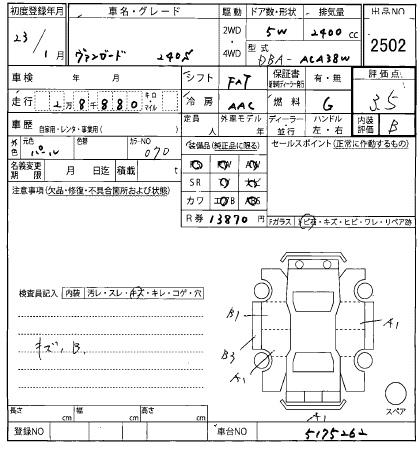 初度登録年月 車名・グレード 駆動 ドア数・形状 排気量 出品NO
23 / 1 月 ヴァンガード 240S 2WD ・ 4WD 5W 2400 cc 2502
型式 DBA- ACA38W
車検 年 月 シフト FAT 保証書 有・無 評価点
走行 2万8千880 キロ・マイル 冷房 AAC 燃料 G 3.5
車歴 自家用・レンタ・事業用( ) 定員 人 外車モデル 年 ディーラー・並行 ハンドル 左・右 内装評価 B
外色 元色 パール 色替 カラーNO 070 装備品(純正品に限る) セールスポイント(正常に作動するもの)
名義変更期限 月 日迄 積載 t SR
注意事項(欠品・修復・不具合箇所および状態) カワ
R券 13870 円 Fガラス 飛石・キズ・ヒビ・ワレ・リペア跡
検査員記入 内装 汚レ・スレ・キズ・キレ・コゲ・穴
キズ、B.
B1
A1
B3
A1
A1
スペア
長さ cm 幅 cm 高さ cm
登録NO 車台NO 5175262